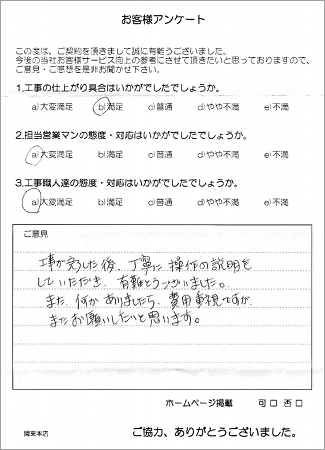 お客様アンケート
この度は、ご契約を頂きまして誠に有難うございました。
今後の当社お客様サービス向上の参考にさせて頂きたいと思っておりますので、
ご意見・ご感想を是非お聞かせ下さい。
1.工事の仕上がり具合はいかがでしたでしょうか。
a)大変満足 b)満足 c)普通 d)やや不満 e)不満
2.担当営業マンの態度・対応はいかがでしたでしょうか。
a)大変満足 b)満足 c)普通 d)やや不満 e)不満
3.工事職人達の態度・対応はいかがでしたでしょうか。
a)大変満足 b)満足 c)普通 d)やや不満 e)不満
ご意見
工事が完了した後、丁寧に操作の説明を
していただき、有難とうございました。
また、何かありましたら、費用重視ですが、
またお願いしたいと思います。
ホームページ掲載 可□ 否□
関東本店
ご協力、ありがとうございました。